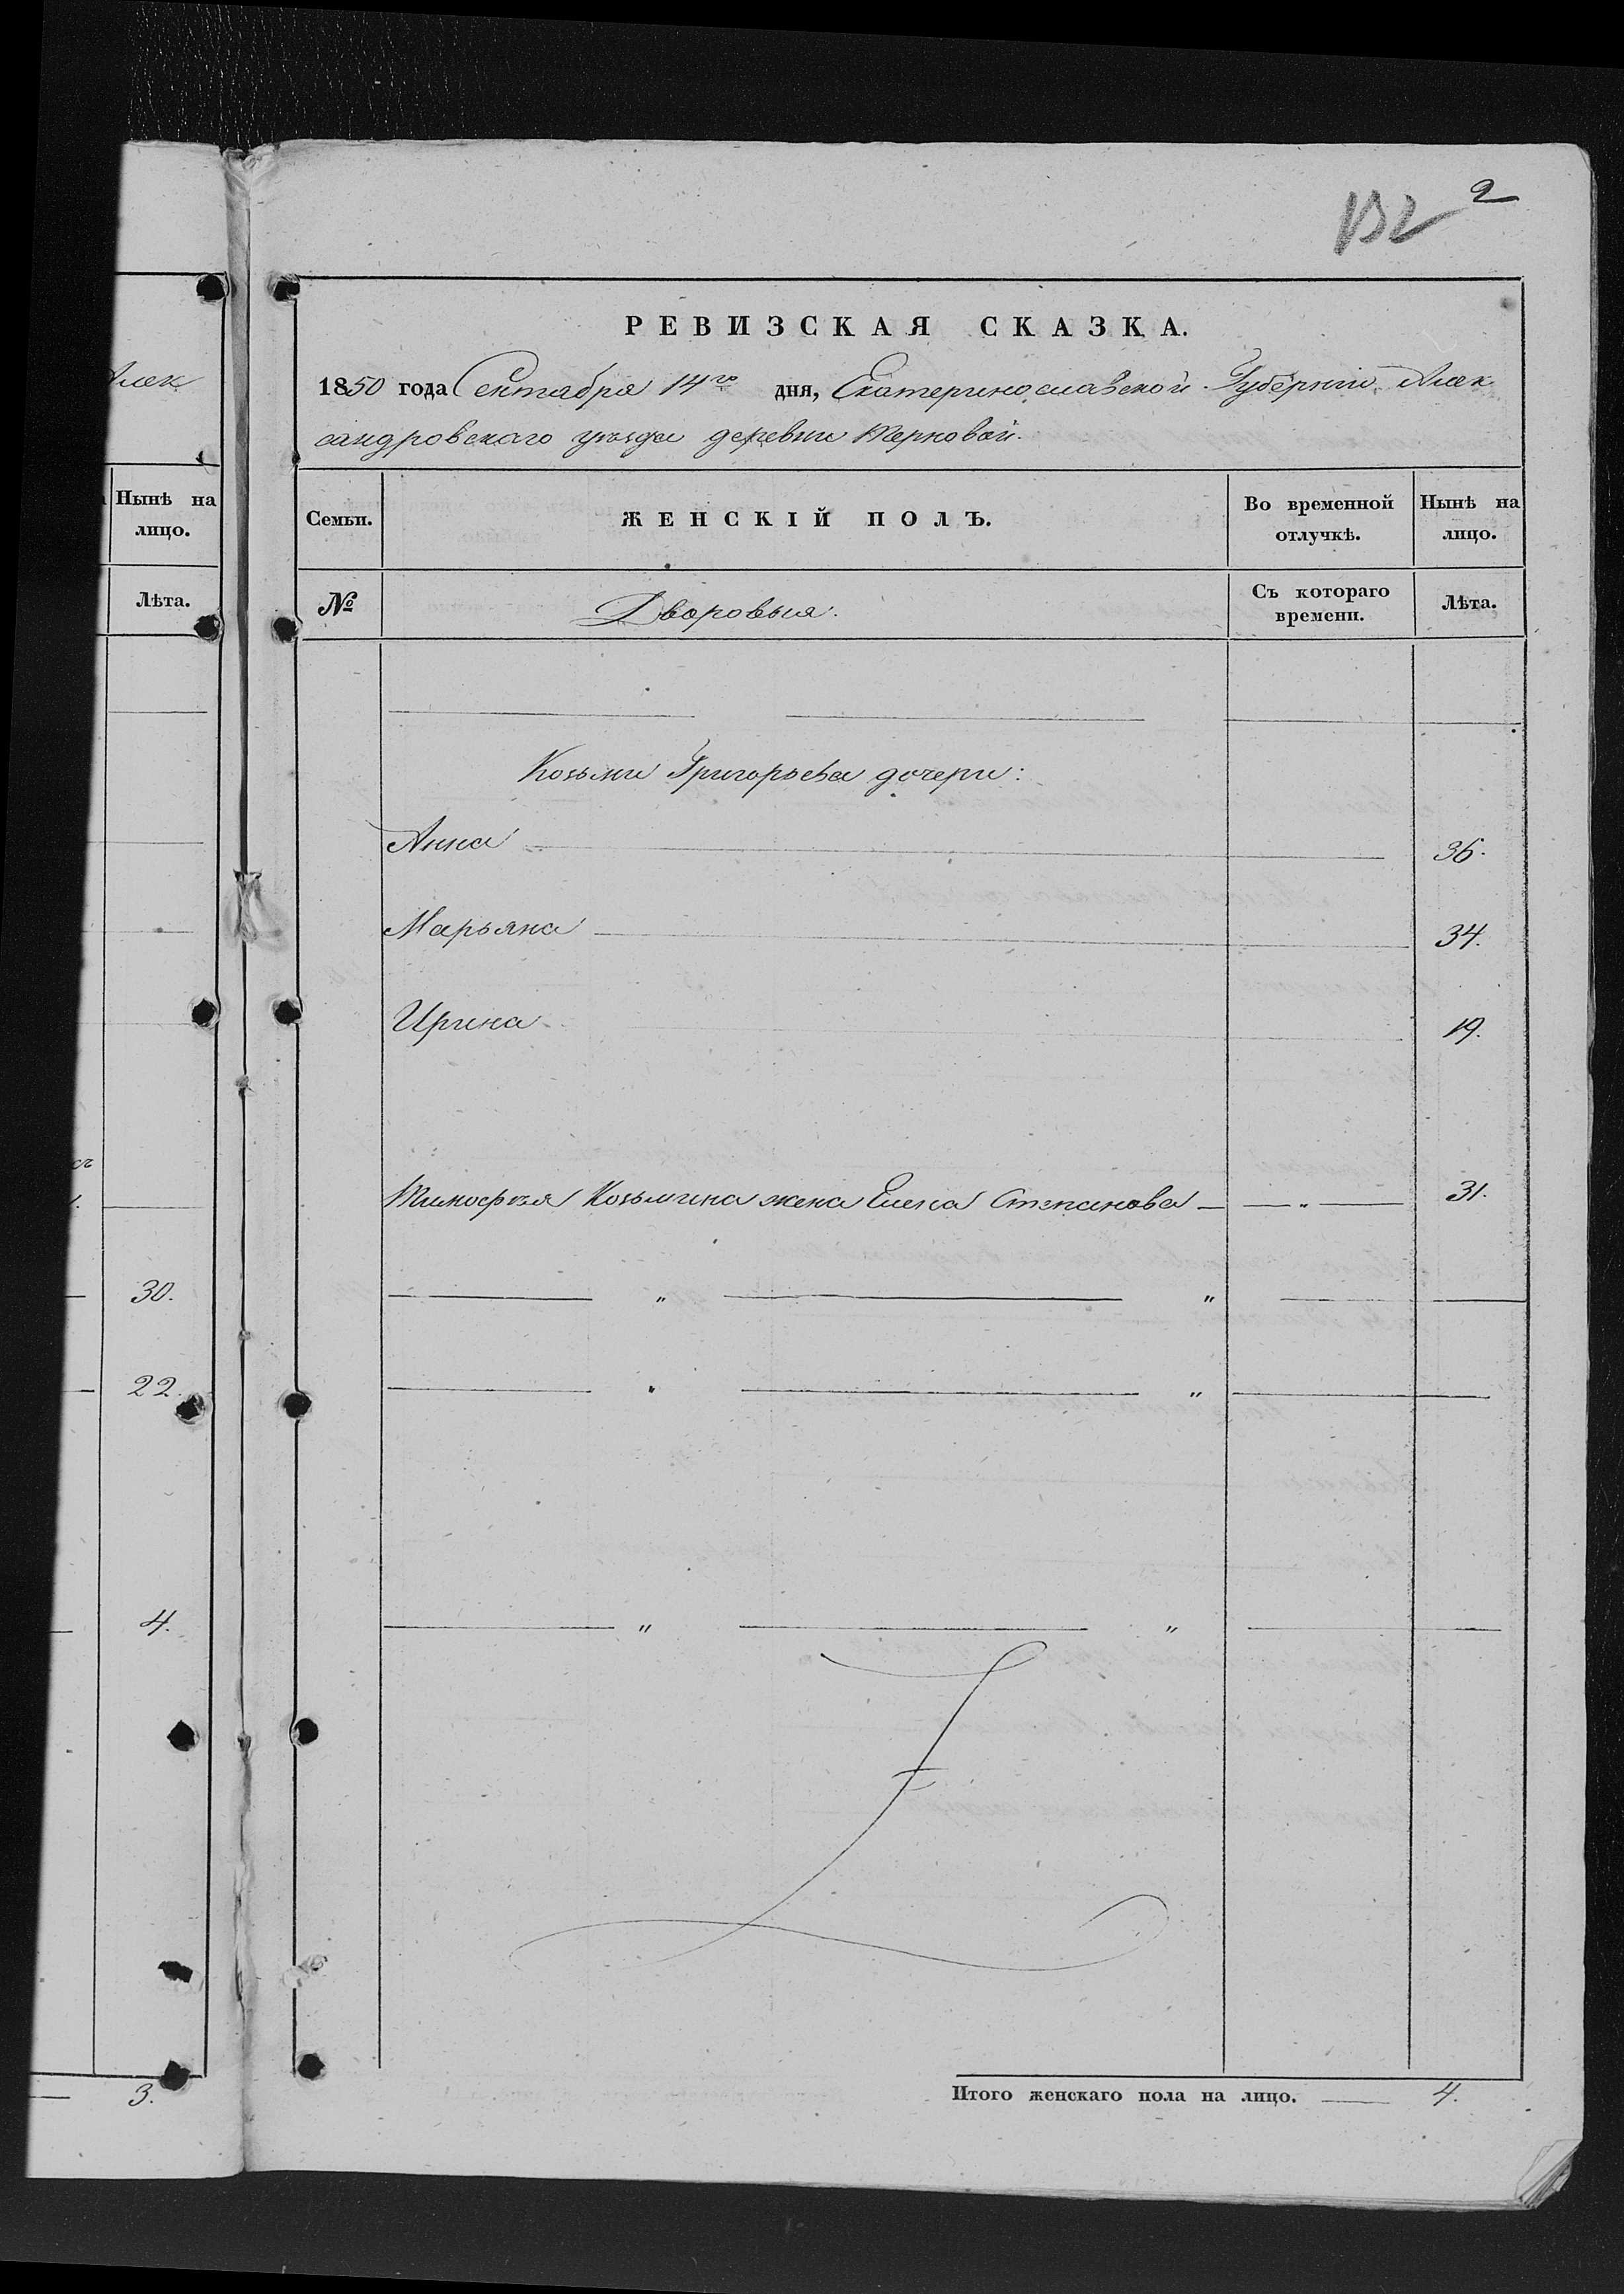 132 2
РЕВИЗСКАЯ СКАЗКА.
1850 года Сентября 14го дня, Екатеринославской Губерніи Алек
сандровскаго уѣзда деревни Терновой.
Алек
Нынѣ на
лицо.
Лѣта.
30.
22.
4.
3.
Семьи.
ЖЕНСКІЙ ПОЛЪ.
Во временной
отлучкѣ.
Нынѣ на
лицо.
№
Дворовыя.
Съ котораго
времени.
Лѣта.
Козьмы Григорьева дочери:
Анна 36.
Марьяна 34.
Ирина 19.
Тимофѣя Козьмина жена Елена Степанова — — „ — 31.
— „ — „ —
— „ — „ —
— „ — „ —
Итого женскаго пола на лицо. — 4.